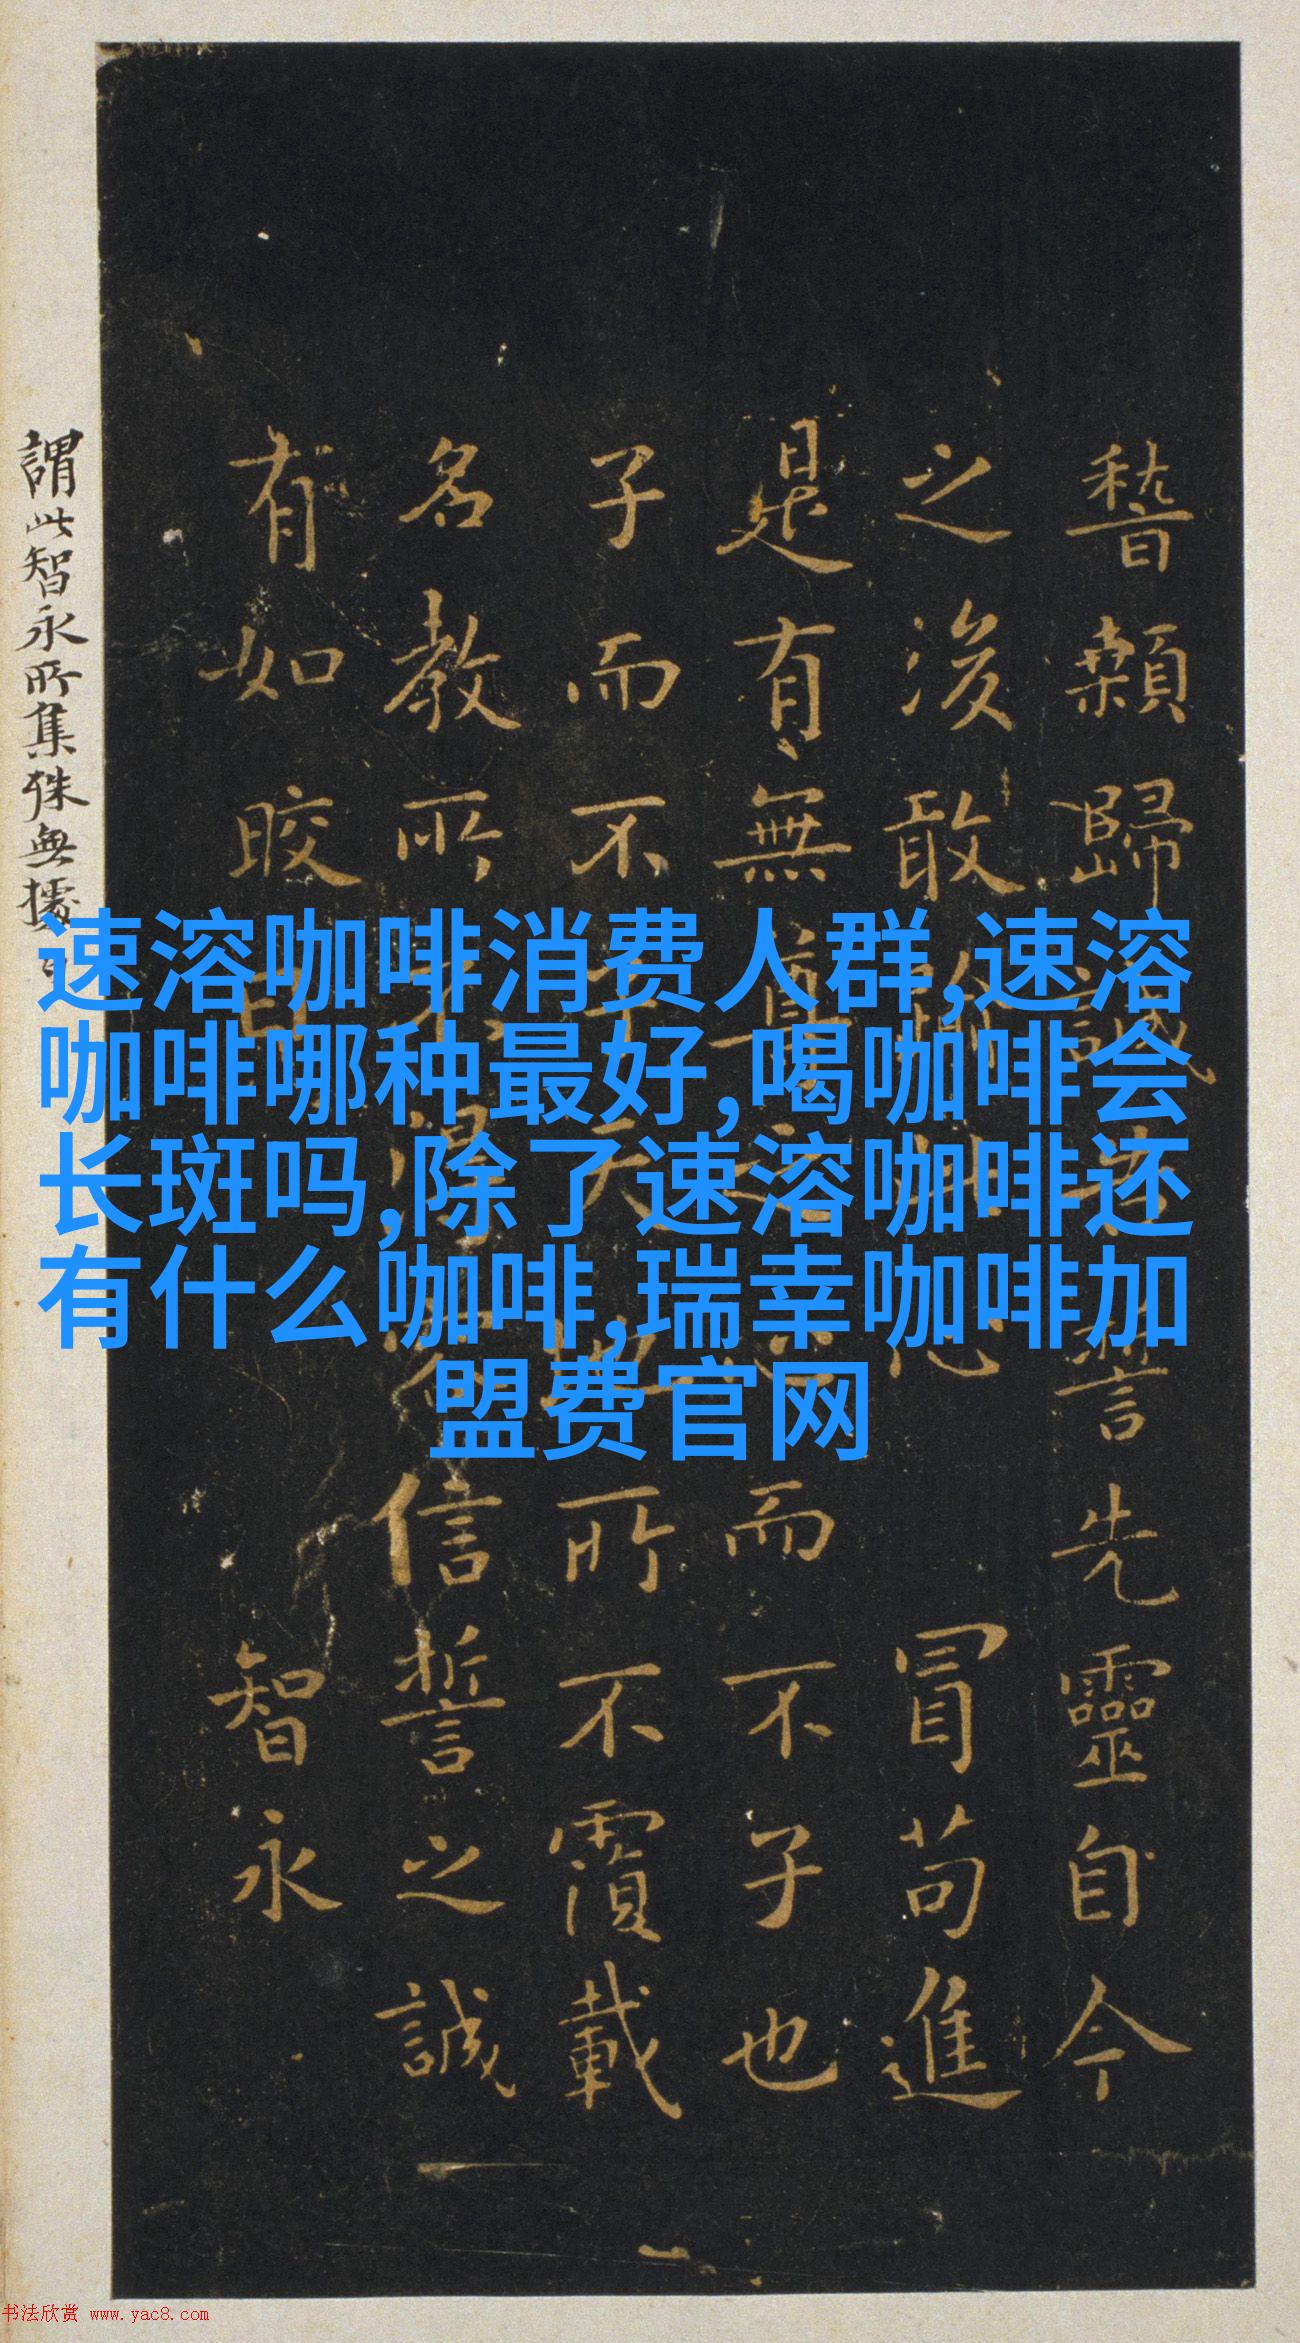 稽顙歸誠告誓先靈自今
之後敢
冒苟進
是有無尊
而不子也
子而不
所不覆載
名教所不得
信誓之誠
有如皎日
智永
謂此智永所集殊無據
速溶咖啡消费人群,速溶
咖啡哪种最好,喝咖啡会
长斑吗,除了速溶咖啡还
有什么咖啡,瑞幸咖啡加
盟费官网
书法欣赏 www.yac8.com